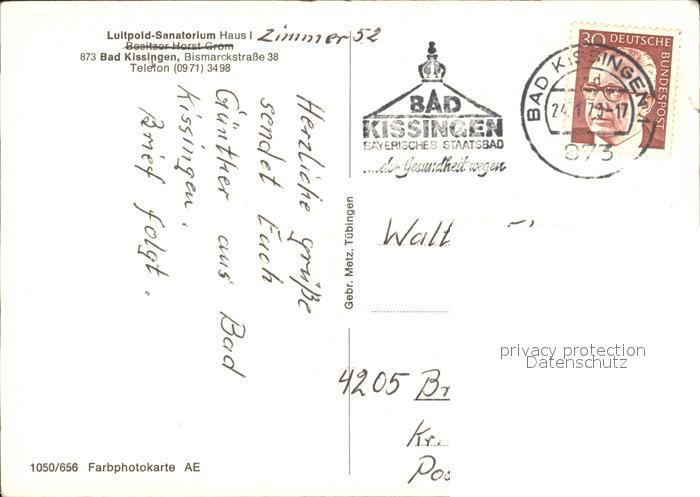 Luitpold-Sanatorium Haus I Zimmer 52
Besitzer Horst Grom
873 Bad Kissingen, Bismarckstraße 38
Telefon (0971) 3498
Herzliche grüße
sendet Euch
Günther aus Bad
Kissingen.
Brief folgt.
1050/656 Farbphotokarte AE
Gebr. Metz, Tübingen
BAD
KISSINGEN
BAYERISCHES STAATSBAD
...der Gesundheit wegen
BAD KISSINGEN 1
d
873
30 DEUTSCHE
BUNDESPOST
Walt
4205 Br
Kr.
privacy protection
Datenschutz